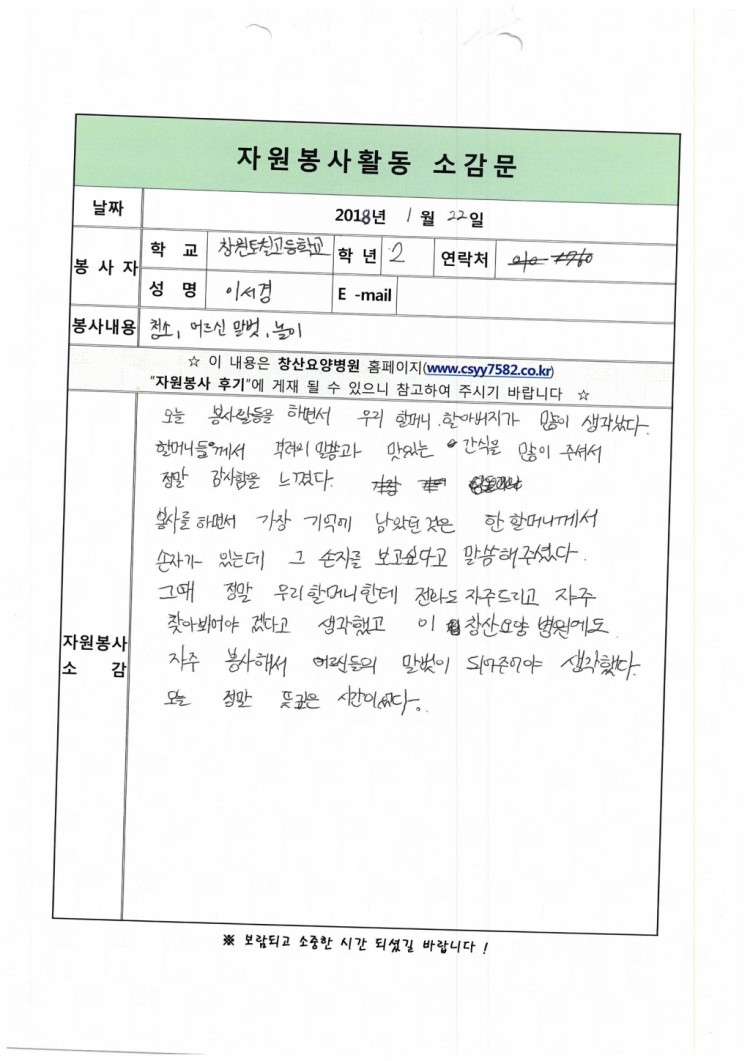 자원봉사활동 소감문
날짜 2018년 1월 22일
봉사자 학교 창원토월고등학교 학년 2 연락처
성명 이서경 E-mail
봉사내용 청소, 어르신 말벗, 놀이
☆ 이 내용은 창산요양병원 홈페이지(www.csyy7582.co.kr)
"자원봉사 후기"에 게재 될 수 있으니 참고하여 주시기 바랍니다 ☆
자원봉사 소감
오늘 봉사활동을 하면서 우리 할머니.할아버지가 많이 생각났다.
할머니들께서 격려의 말씀과 맛있는 간식을 많이 주셔서
정말 감사함을 느꼈다.
봉사를 하면서 가장 기억에 남았던 것은 한 할머니께서
손자가 있는데 그 손자를 보고싶다고 말씀해주셨다.
그때 정말 우리할머니한테 전화도 자주드리고 자주
찾아봬어야 겠다고 생각했고 이 창산요양 병원에도
자주 봉사해서 어르신들의 말벗이 되어준어야 생각했다.
오늘 정말 뜻깊은 시간이였다.
※ 보람되고 소중한 시간 되셨길 바랍니다 !